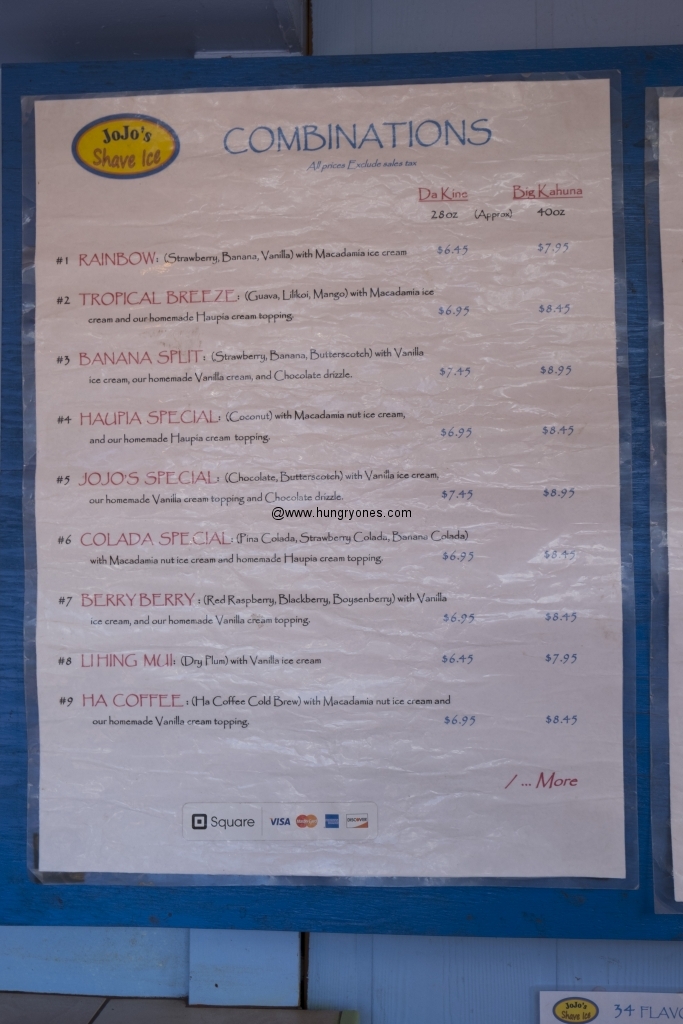 JoJo's
Shave Ice
COMBINATIONS
All prices Exclude sales tax
Da Kine Big Kahuna
28oz (Approx) 40oz
#1 RAINBOW: (Strawberry, Banana, Vanilla) with Macadamia ice cream $6.45 $7.95
#2 TROPICAL BREEZE: (Guava, Lilikoi, Mango) with Macadamia ice
cream and our homemade Haupia cream topping. $6.95 $8.45
#3 BANANA SPLIT: (Strawberry, Banana, Butterscotch) with Vanilla
ice cream, our homemade Vanilla cream, and Chocolate drizzle. $7.45 $8.95
#4 HAUPIA SPECIAL: (Coconut) with Macadamia nut ice cream,
and our homemade Haupia cream topping. $6.95 $8.45
#5 JOJO'S SPECIAL: (Chocolate, Butterscotch) with Vanilla ice cream,
our homemade Vanilla cream topping and Chocolate drizzle. $7.45 $8.95
@www.hungryones.com
#6 COLADA SPECIAL: (Pina Colada, Strawberry Colada, Banana Colada)
with Macadamia nut ice cream and homemade Haupia cream topping. $6.95 $8.45
#7 BERRY BERRY: (Red Raspberry, Blackberry, Boysenberry) with Vanilla
ice cream, and our homemade Vanilla cream topping. $6.95 $8.45
#8 LI HING MUI: (Dry Plum) with Vanilla ice cream $6.45 $7.95
#9 HA COFFEE: (Ha Coffee Cold Brew) with Macadamia nut ice cream and
our homemade Vanilla cream topping. $6.95 $8.45
/ ... More
Square VISA MasterCard DISCOVER
JoJo's
Shave Ice
34 FLAVO